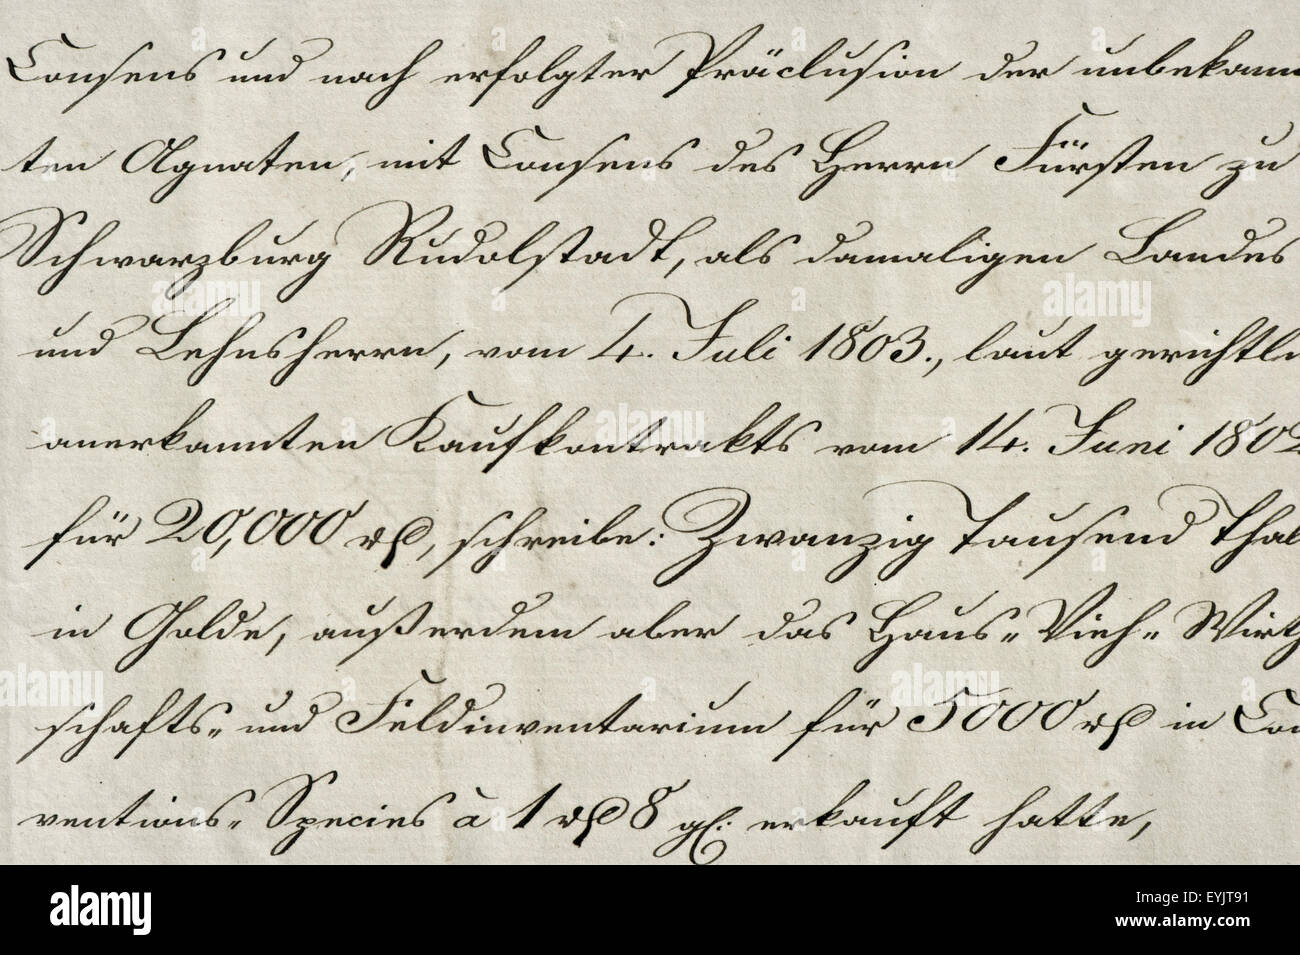 Consens und nach erfolgter Präclusion der unbekann
ten Agnaten, mit Consens des Herrn Fürsten zu
Schwarzburg Rudolstadt, als damaligen Landes
und Lehnsherrn, vom 4. Juli 1803., laut gerichtli
anerkannten Kaufkontrakts vom 14. Juni 1802
für 20,000 rβ, schreibe: Zwanzig Tausend Thal
in Golde, außerdem aber das Haus- Vieh- Wirth
schafts- und Feldinventarium für 5000 rβ in Con
ventions- Species à 1 rβ 8 gl. erkauft hatte,
alamy
Image ID: EYJT91
www.alamy.com